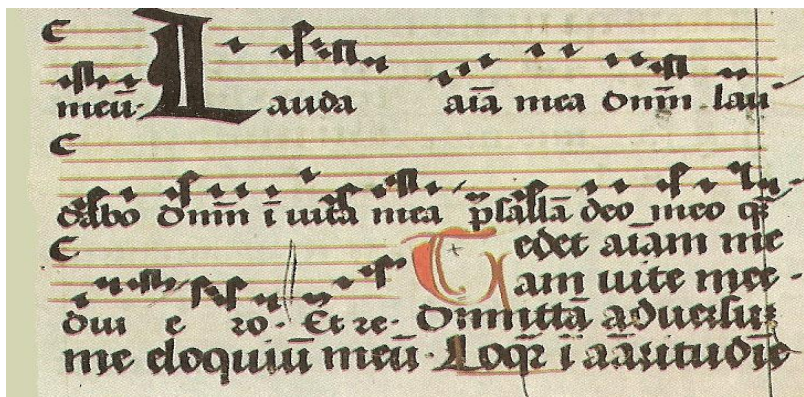 meū · Lauda aīa mea dnm̄ · lau
dabo dnm̄ ī uita mea psallā deo meo q̄
diu e ro · Et re · Tedet aīam me
am uite mee ·
dimittā aduersus
me eloquiū meū · Loqr̄ ī am̄aritudīe